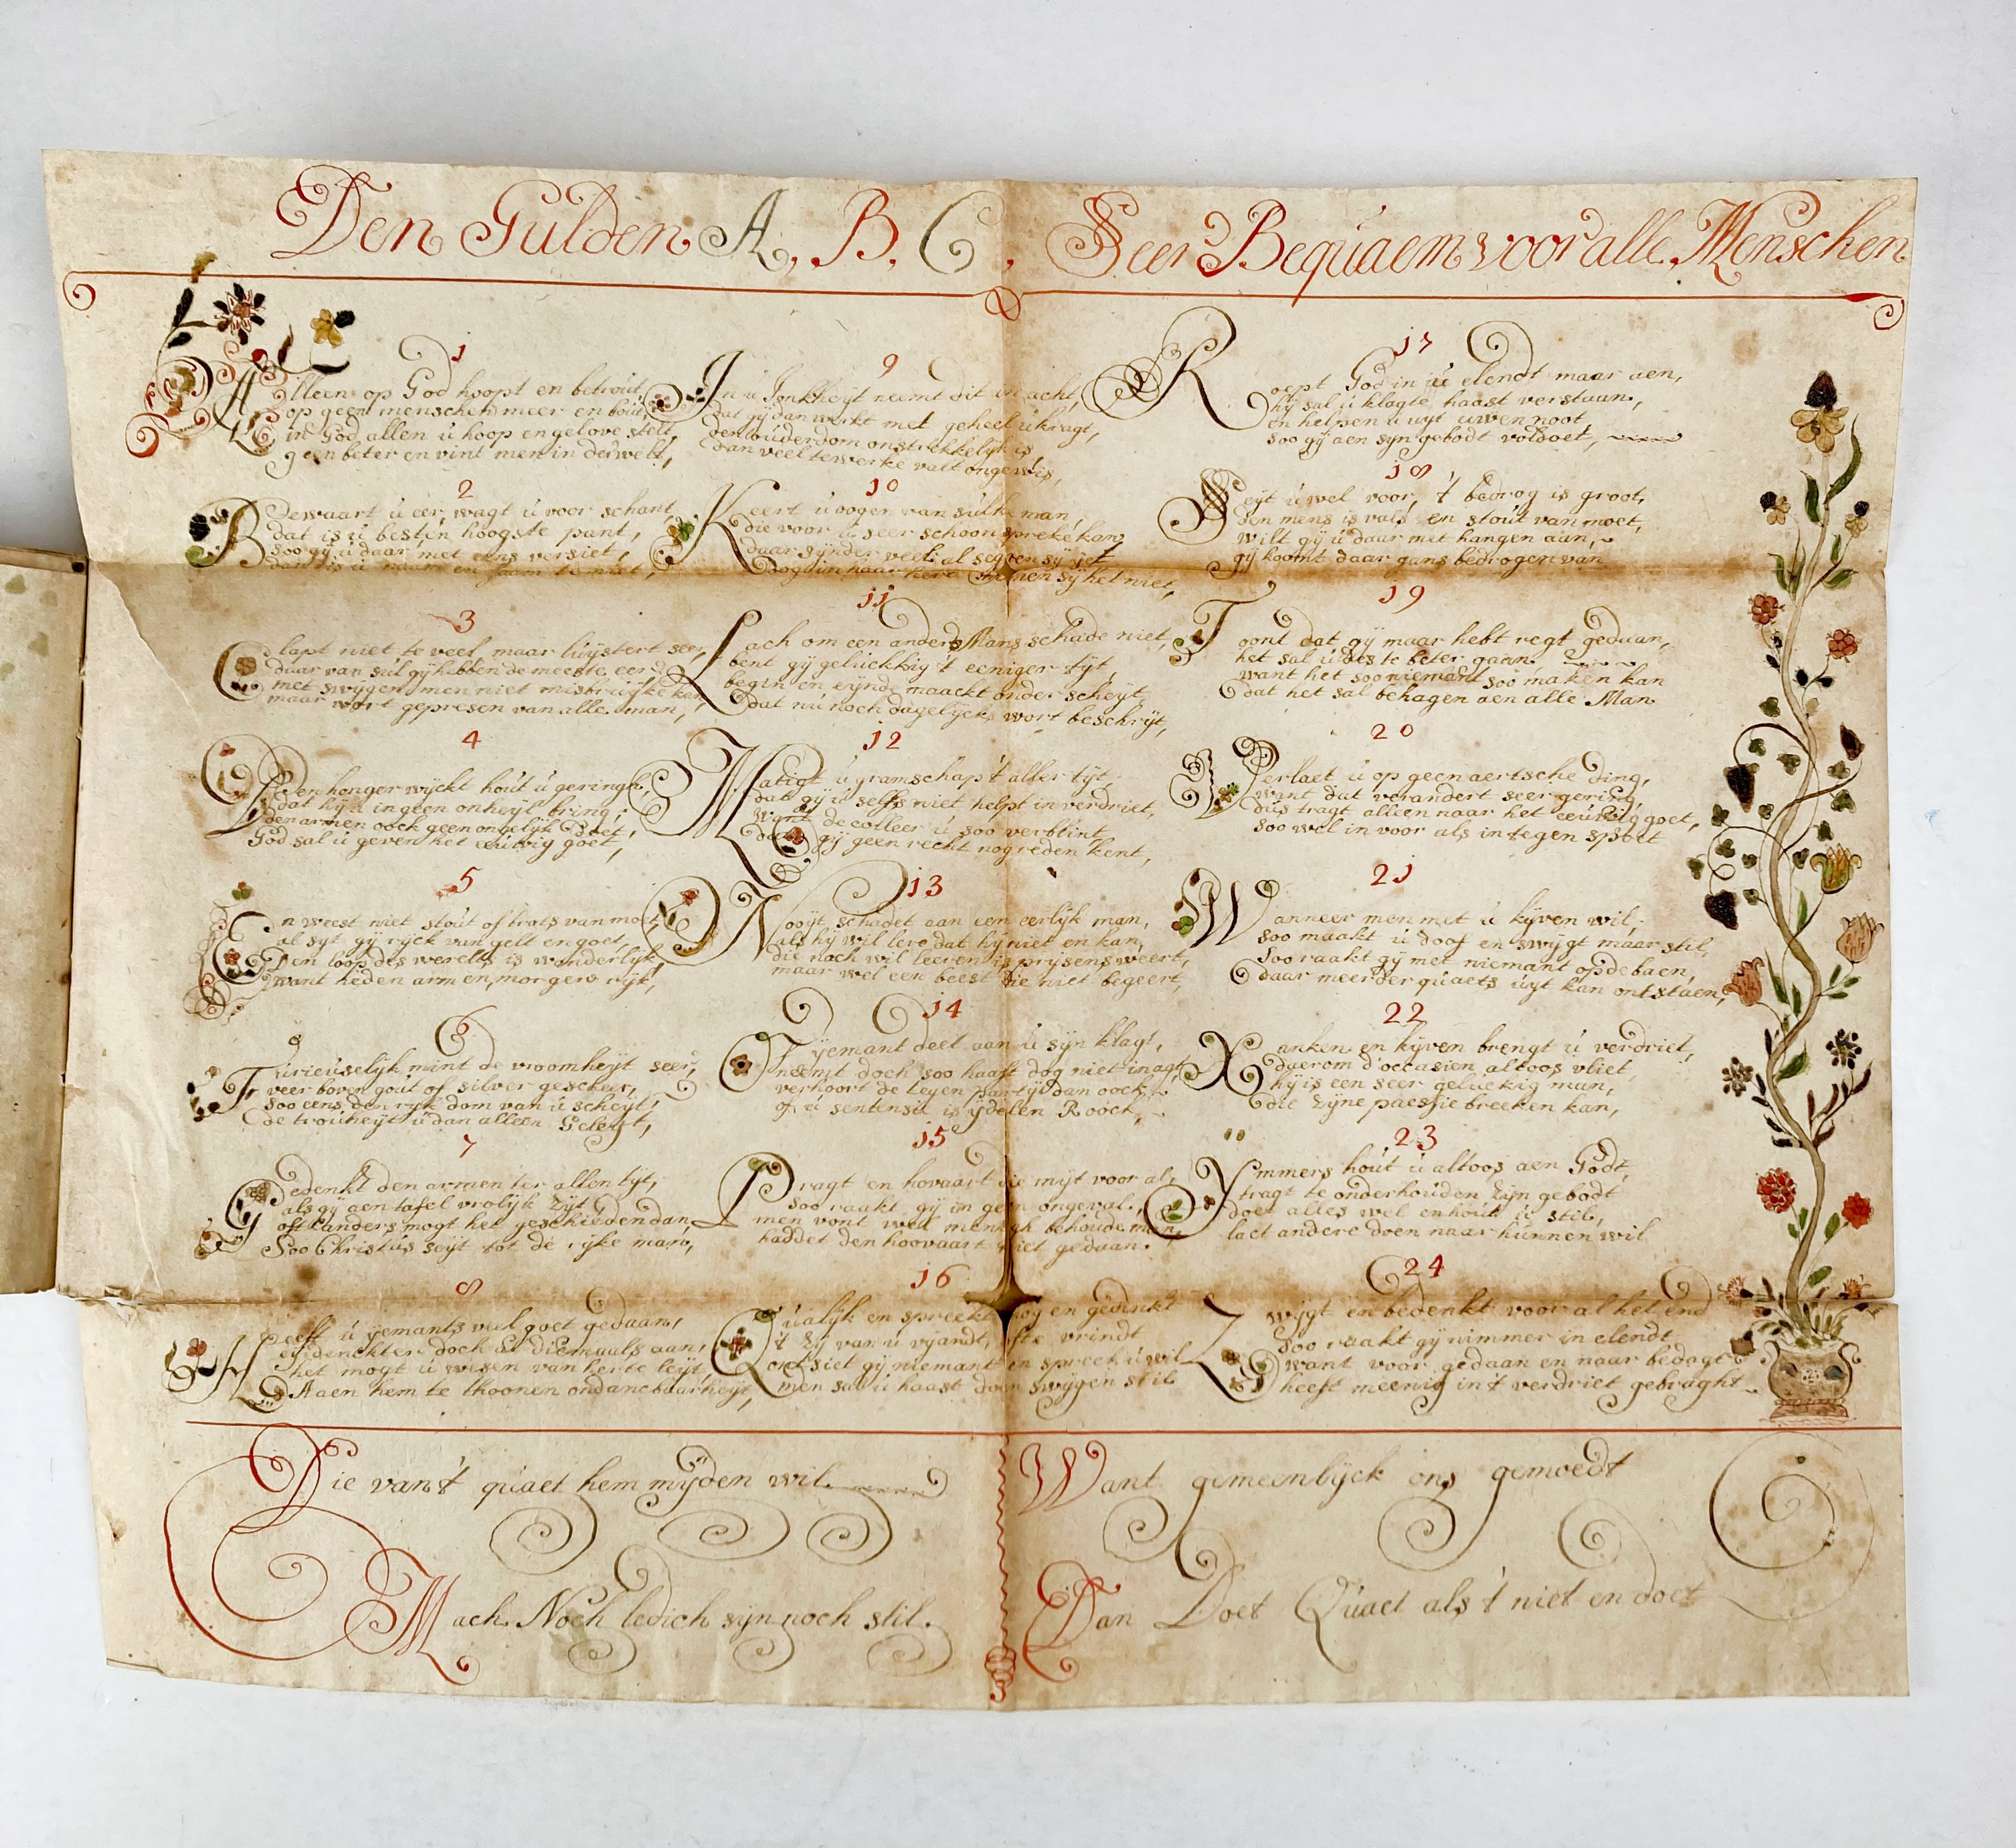 Den Gulden A, B, C, Seer Bequaem voor alle Menschen
1
Alleen op God hoopt en betrout,
op geen menschen meer en bout
in God allen u hoop en gelove stelt,
geen beter en vint men in de welt,
2
Bewaart u eer, wagt u voor schant,
dat is u best en hoogste pant,
soo gy u daar met eens versiet,
dan is u naam en faam te niet,
3
Clapt niet te veel maar luystert seer,
daar van sul gy hebben de meeste eer,
met swygen men niet misbruyke kan
maar wort gepresen van alle man,
4
Den honger wyckt hout u geringh,
dat hy u in geen onheyl bring,
den armen oock geen ongelijk doet,
God sal u geven het eeuwig goet,
5
En weest niet stout of trots van moet,
al syt gy ryck van gelt en goet,
Den loop des werelts is wonderlyk,
want heden arm en, morgen rijk,
6
Furieuselijk mint de vroomheyt seer,
veer boven gout of silver gescheer,
soo eens den rykdom van u scheyt,
de trouheyt u dan alleen Geleyt,
7
Gedenkt den armen ter allen tyt,
als gy aen tafel vrolijk zyt
oft anders mogt het geschieden dan,
Soo Christus seyt tot de ryke man,
8
Heeft u yemants wel goet gedaan,
ey denckter doch al diemaals aan,
het mogt u wesen van herte leyt,
Aaen hem te thoonen ondancbaarheyt,
9
In u Jonkheyt neemt dit in acht,
dat gy dan werkt met geheel u kragt,
den ouderdom onstrekkelyk is,
dan veel te werke valt ongewis,
10
Keert u oogen van sulke man,
die voor u seer schoon spreke kan,
daar synder veel al seggen sy jet
dog in haar herte menen sy het niet,
11
Lach om een anders Mans schade niet,
bent gy geluckkig t eeniger tyt,
begin en eynde maackt onderscheyt,
dat nu noch dagelijcks wort beschryt,
12
Matigt u gramschap t aller tyt,
dat gy u selfs niet helpt in verdriet,
want de colleer u soo verblint,
dat gy geen recht nog reden kent,
13
Nooyt schadet aan een eerlyk man,
als hy wil lere dat hy niet en kan,
die noch wil leeren is prysens weert,
maar wel een beest die niet begeert,
14
Of yemant deet aan u syn klagt,
neemt doch soo haast dog niet in agt,
verhoort de tegen partij dan oock,
of u sentensie is ydelen Roock,
15
Pragt en hovaart die myt voor al,
soo raakt gy in geen ongeval,
men vont wel menigh behoude man,
haddet den hoovaart niet gedaan.
16
Qualyk en spreekt nog en gedinkt
't Zy van u vyandt, ofte vrindt
ontsiet gy niemant en spreek u wil
men sal u haast doen swygen stil
17
Roept God in u elendt maar aen,
hy sal u klagte haast verstaan,
en helpen u uyt uwen noot
soo gy aen syn gebodt voldoet,
18
Seyt u wel voor, 't bedrog is groot,
den mens is vals en stout van moet,
wilt gy u daar met hangen aan,
gy koomt daar gans bedrogen van
19
Toont dat gy maar hebt regt gedaan,
het sal u des te beter gaan
want het soo niemant soo maken kan
dat het sal behagen aen alle Man
20
Verlaet u op geen aertsche ding,
want dat verandert seer gering,
dus tragt alleen naar het eeuwig goet,
soo wel in voor als in tegen spoet
21
Wanneer men met u kyven wil,
soo maakt u doof en swygt maar stil,
soo raakt gy met niemant op de baen,
daar meerder quaets uyt kan ontstaen,
22
Xanken en kyven brengt u verdriet,
daerom d'occasien altoos vliet,
hy is een seer geluckig man,
die zyne paessie breeken kan,
23
Ymmers hout u altoos aen Godt,
tragt te onderhouden zyn gebodt
doet alles wel en hout u stil,
laet andere doen naar hunnen wil
24
Zwygt en bedenkt voor al het end
soo raakt gy nimmer in elendt
want voor gedaan en naar bedagt
heeft meenig in 't verdriet gebraght
Die van't quaet hem myden wil
Mach Noch ledich syn noch stil.
Want gemeenlyck ons gemoedt
Dan Doet Quaet als 't niet en doet